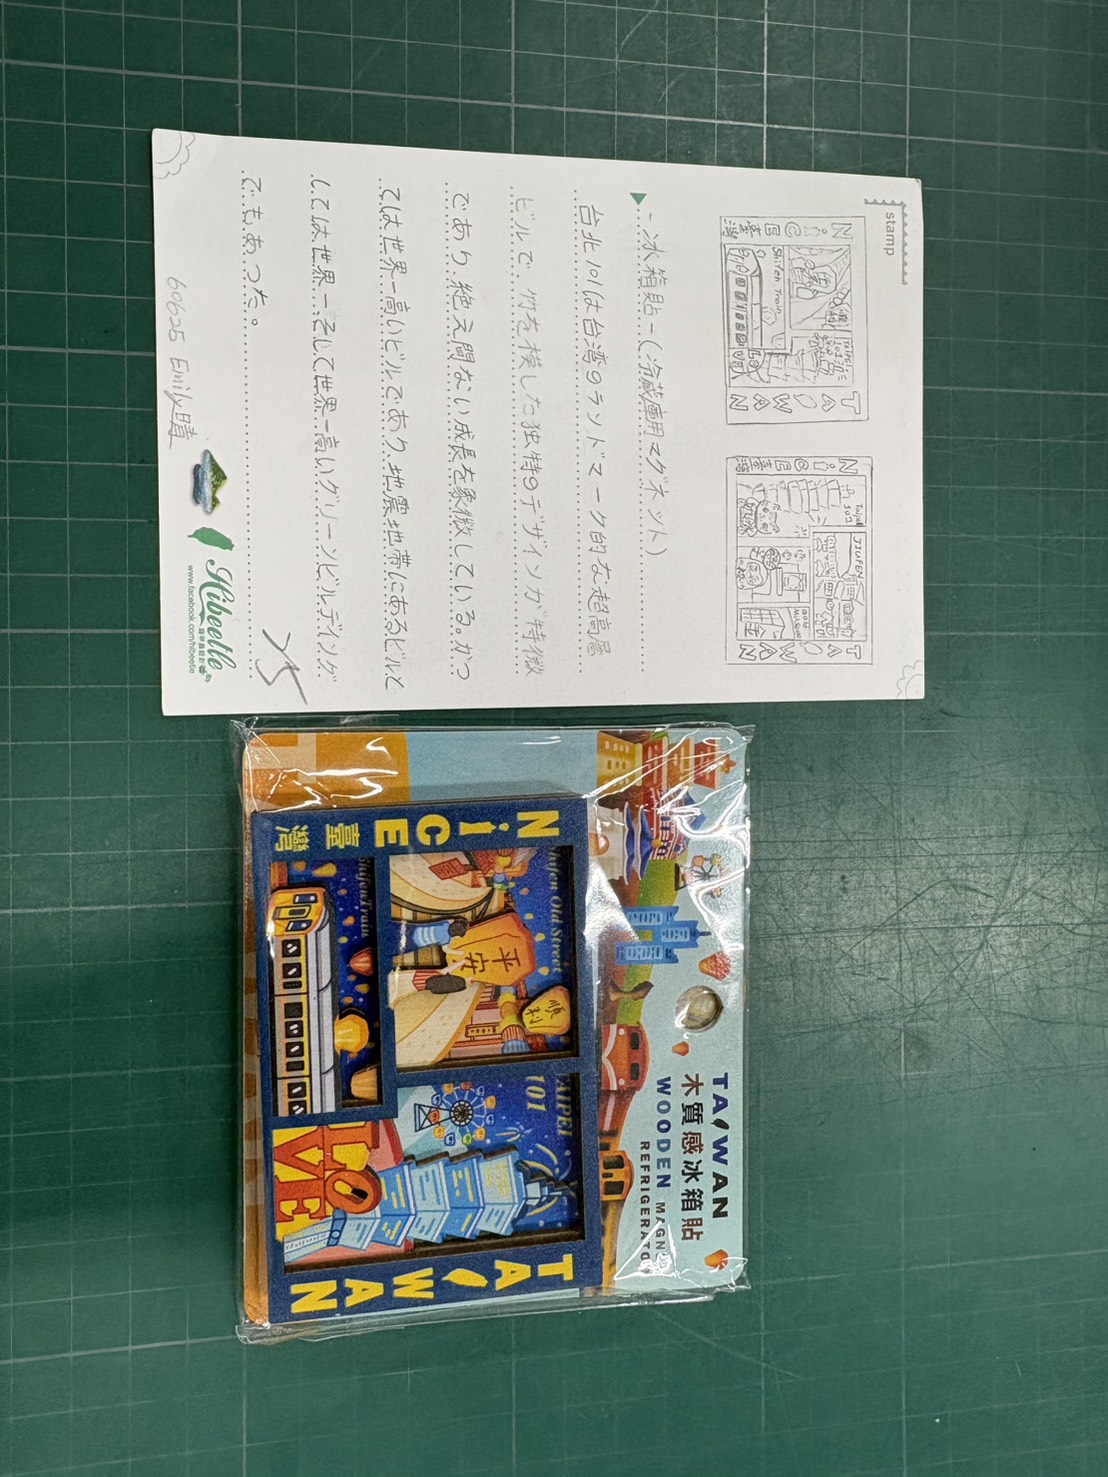 stamp
NiCE臺灣
Shifen Train
TAIWAN
NiCE臺灣
Taipei 101
JIUFEN
GOLD MUSEUM
金
TAIWAN
-冰箱貼-(冷蔵庫用マグネット)
台北101は台湾のランドマーク的な超高層
ビルで、竹を模した独特のデザインが特徴
であり、絶え間ない成長を象徴している。かつ
ては世界一高いビルであり、地震地帯にあるビルと
しては世界一、そして世界一高いグリーンビルディング
でもあった。
60625 Emily晴
Hibeetle
www.facebook.com/hibeetle
TAIWAN
木質感冰箱貼
WOODEN MAGN
REFRIGERATO
NiCE
臺灣
hifen Old Street
平安
順利
Shifen Train
TAIPEI
101
LOVE
TAIWAN